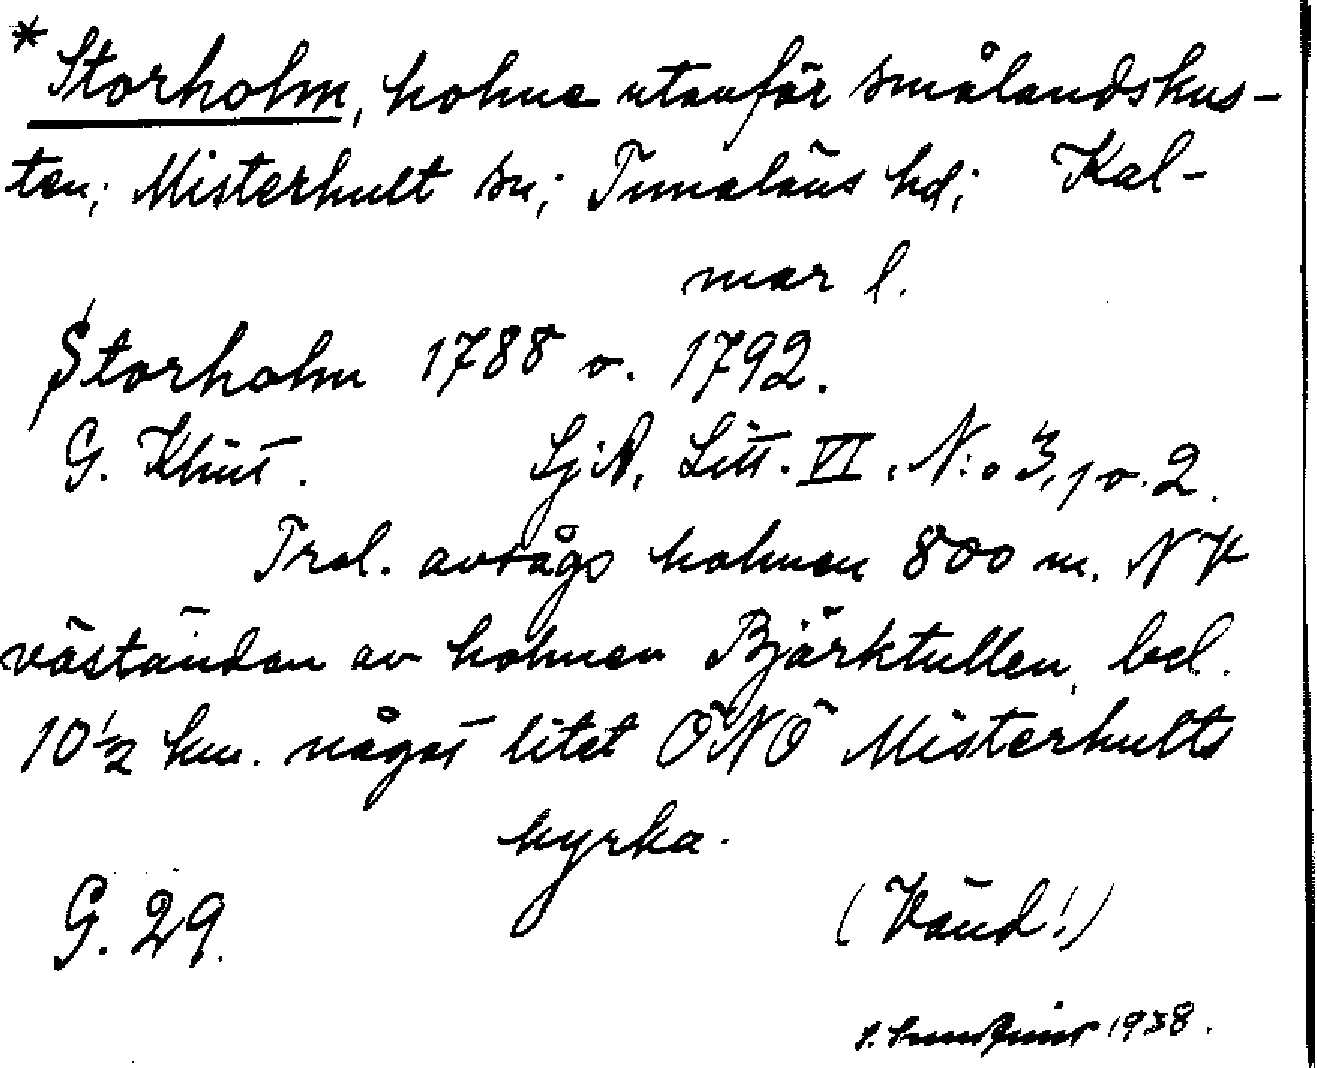 * Storholm, holme utanför smålandskus-
ten; Misterhult sn; Tunaläns hd; Kal-
mar l.
Storholm 1788 o. 1792.
G. Klint. SjA, Litt. VI. N:o 3, 1 o. 2.
Trol. avsågs holmen 800 m. NV
västandan av holmen Björktullen, bel.
10 1/2 km. något litet ÖNÖ Misterhults
kyrka.
G. 29. (Vänd!)
1938.